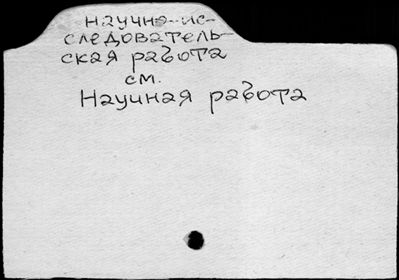 научно-ис-
следователь-
ская работа
см.
Научная работа